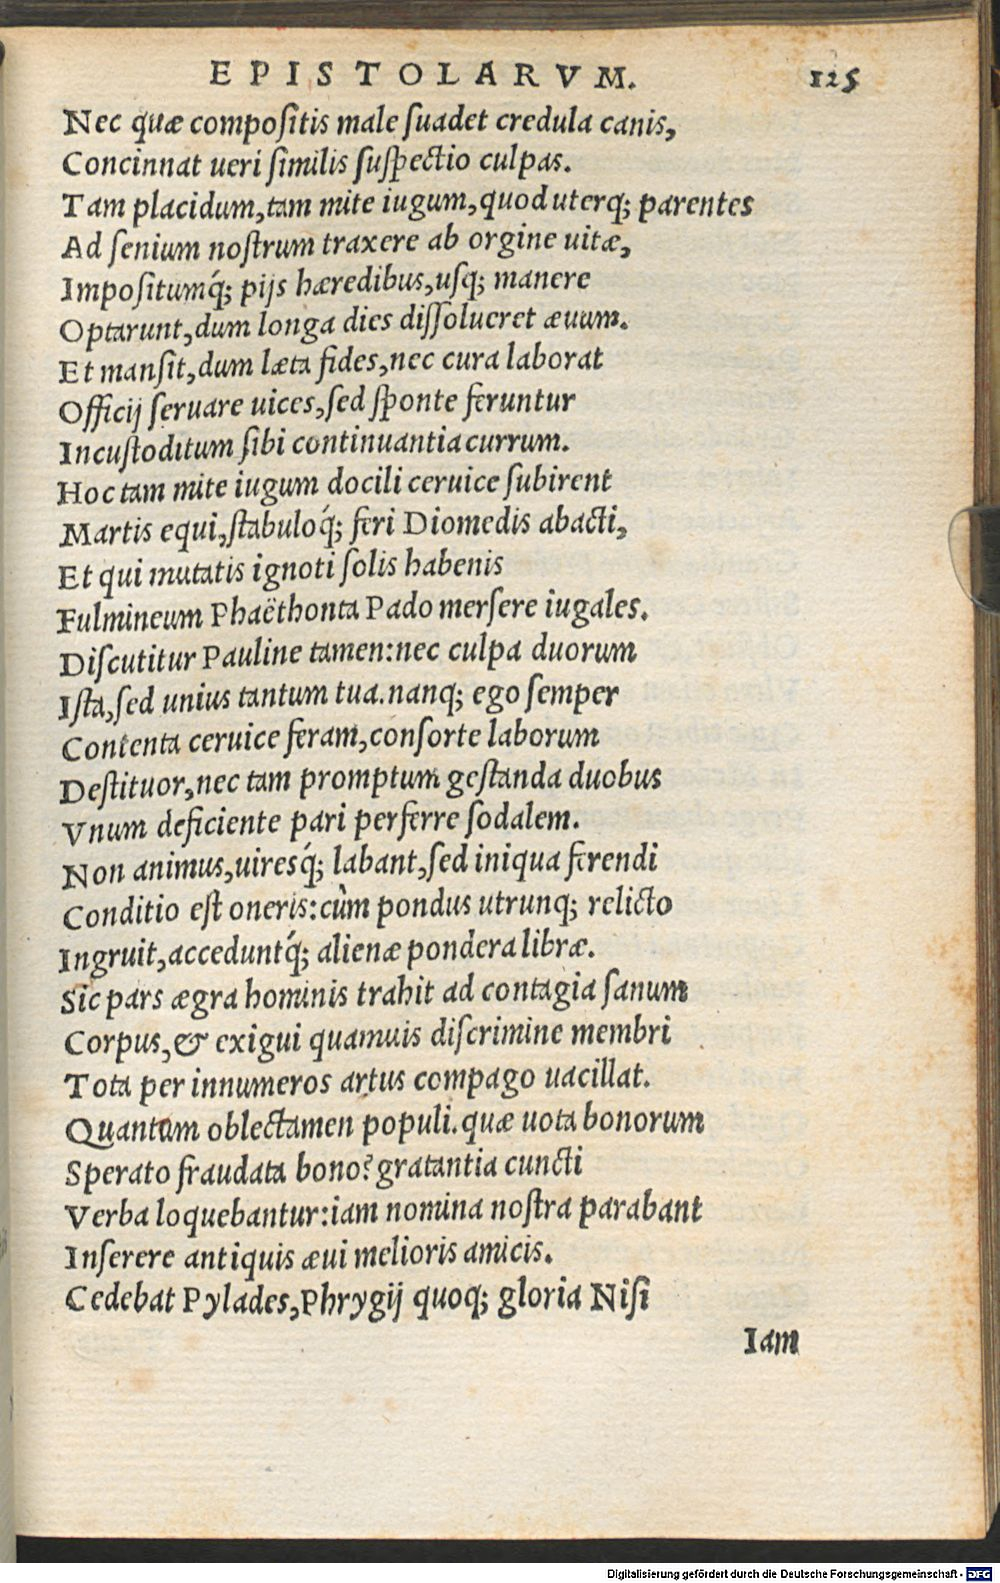 EPISTOLARVM. 125
Nec quæ compoſitis male ſuadet credula canis,
Concinnat ueri ſimilis ſuſpectio culpas.
Tam placidum, tam mite iugum, quod uterq; parentes
Ad ſenium noſtrum traxere ab orgine uitæ,
Impoſitumq́; pijs hæredibus, uſq; manere
Optarunt, dum longa dies diſſolueret æuum.
Et manſit, dum læta fides, nec cura laborat
Officij ſeruare uices, ſed ſponte feruntur
Incuſtoditum ſibi continuantia currum.
Hoc tam mite iugum docili ceruice ſubirent
Martis equi, ſtabuloq́; feri Diomedis abacti,
Et qui mutatis ignoti ſolis habenis
Fulmineum Phaëthonta Pado merſere iugales.
Diſcutitur Pauline tamen: nec culpa duorum
Iſta, ſed unius tantum tua. nanq; ego ſemper
Contenta ceruice feram, conſorte laborum
Deſtituor, nec tam promptum geſtanda duobus
Vnum deficiente pari perferre ſodalem.
Non animus, uiresq́; labant, ſed iniqua ferendi
Conditio eſt oneris: cùm pondus utrunq; relicto
Ingruit, acceduntq́; alienæ pondera libræ.
Sic pars ægra hominis trahit ad contagia ſanum
Corpus, & exigui quamuis diſcrimine membri
Tota per innumeros artus compago uacillat.
Quantum oblectamen populi. quæ uota bonorum
Sperato fraudata bono? gratantia cuncti
Verba loquebantur: iam nomina noſtra parabant
Inſerere antiquis æui melioris amicis.
Cedebat Pylades, Phrygij quoq; gloria Niſi
Iam
Digitalisierung gefördert durch die Deutsche Forschungsgemeinschaft - DFG